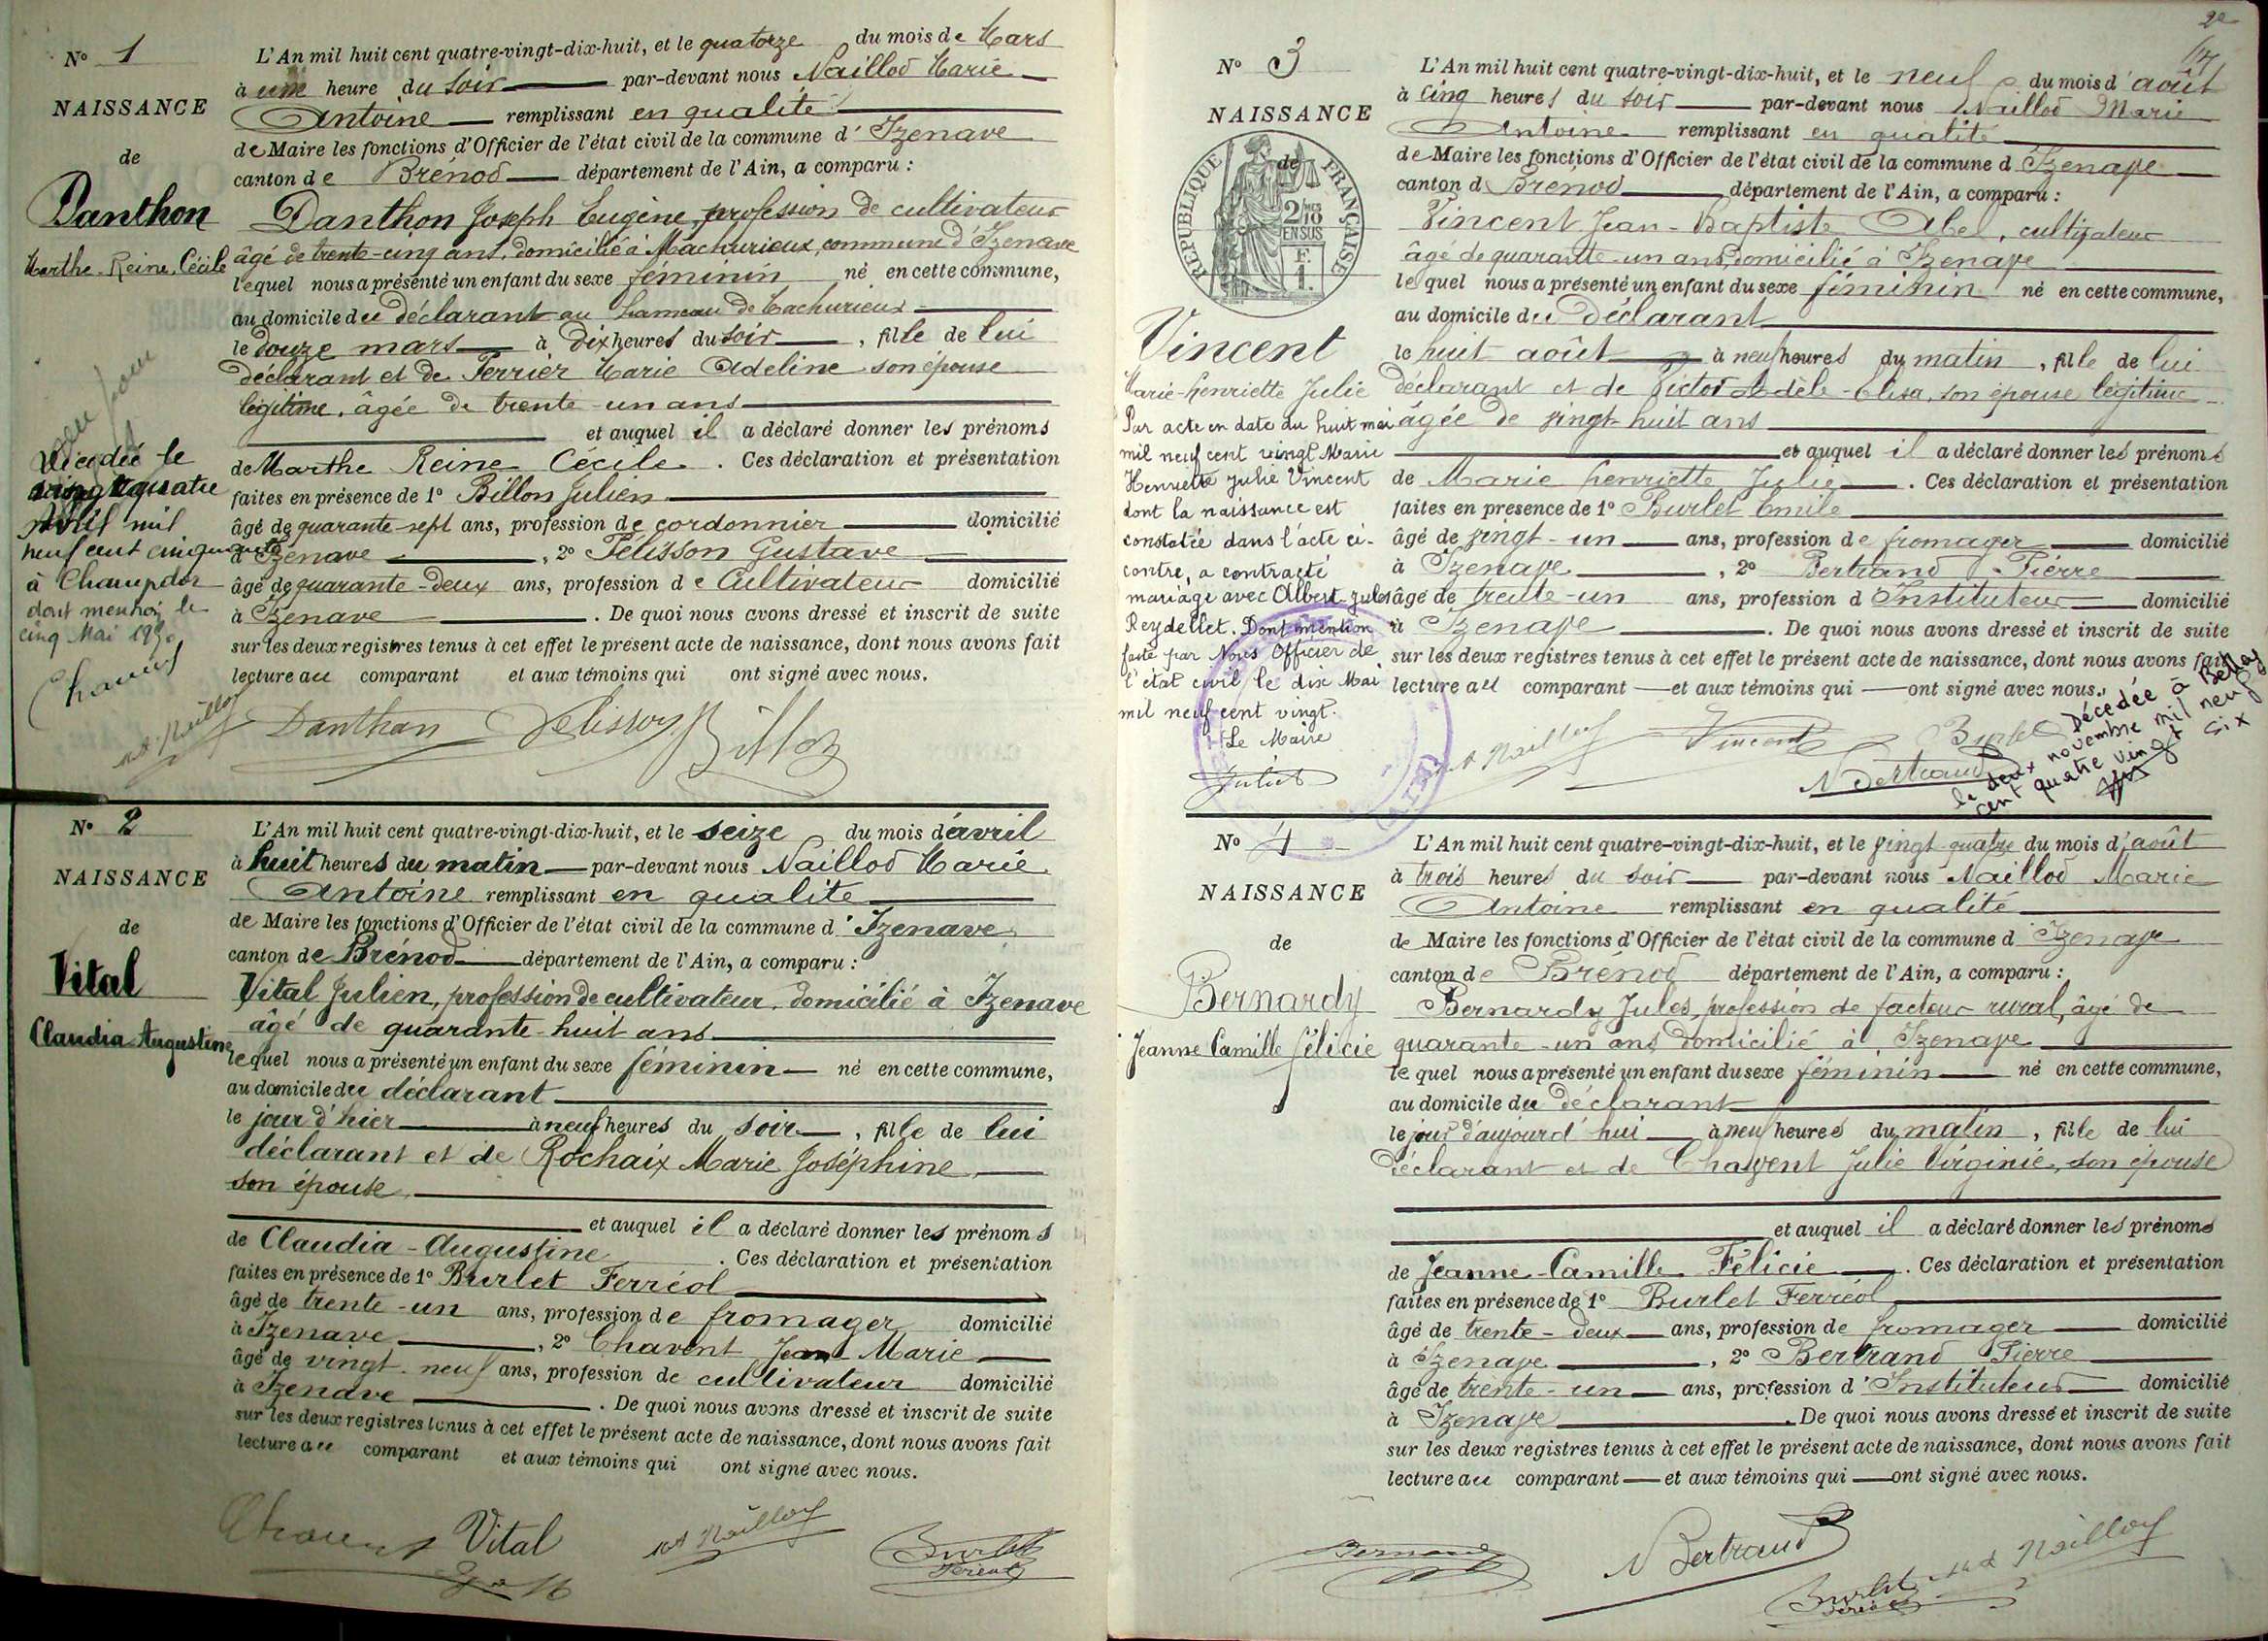 N° 1
NAISSANCE
de
Danthon
Marthe-Reine, Cécile
L'An mil huit cent quatre-vingt-dix-huit, et le quatorze du mois de Mars
à une heure du soir par-devant nous Naillod Marie
Antoine remplissant en qualité
de Maire les fonctions d'Officier de l'état civil de la commune d'Izenave
canton de Brénod département de l'Ain, a comparu :
Danthon Joseph Eugène, profession de cultivateur
âgé de trente-cinq ans, domicilié à Machurieux, commune d'Izenave
lequel nous a présenté un enfant du sexe féminin né en cette commune,
au domicile du déclarant au hameau de Machurieux
le douze mars à dix heures du soir, fille de lui
déclarant et de Ferrier Marie Adeline son épouse
légitime, âgée de trente-un ans
et auquel il a déclaré donner les prénoms
de Marthe Reine Cécile. Ces déclaration et présentation
faites en présence de 1° Billon Julien
âgé de quarante-sept ans, profession de cordonnier domicilié
à Izenave, 2° Pélisson Gustave
âgé de quarante-deux ans, profession de Cultivateur domicilié
à Izenave. De quoi nous avons dressé et inscrit de suite
sur les deux registres tenus à cet effet le présent acte de naissance, dont nous avons fait
lecture au comparant et aux témoins qui ont signé avec nous.
Décédée le
vingt quatre
avril mil
neuf cent cinquante
à Champdor
dont mention le
cinq Mai 1950
M.A. Naillod Danthon Pelisson Billon
N° 2
NAISSANCE
de
Vital
Claudia-Augustine
L'An mil huit cent quatre-vingt-dix-huit, et le seize du mois d'avril
à huit heures du matin par-devant nous Naillod Marie
Antoine remplissant en qualité
de Maire les fonctions d'Officier de l'état civil de la commune d'Izenave
canton de Brénod département de l'Ain, a comparu :
Vital Julien, profession de cultivateur, domicilié à Izenave
âgé de quarante-huit ans
lequel nous a présenté un enfant du sexe féminin né en cette commune,
au domicile du déclarant
le jour d'hier à neuf heures du soir, fille de lui
déclarant et de Rochaix Marie Joséphine
son épouse
et auquel il a déclaré donner les prénoms
de Claudia-Augustine. Ces déclaration et présentation
faites en présence de 1° Burlet Ferréol
âgé de trente-un ans, profession de fromager domicilié
à Izenave, 2° Chavent Jean Marie
âgé de vingt-neuf ans, profession de cultivateur domicilié
à Izenave. De quoi nous avons dressé et inscrit de suite
sur les deux registres tenus à cet effet le présent acte de naissance, dont nous avons fait
lecture au comparant et aux témoins qui ont signé avec nous.
Chavent Vital M.A. Naillod Burlet
Feréol
2e
N° 3
NAISSANCE
de
REPUBLIQUE FRANÇAISE
2/10
EN SUS
F.
1.
Vincent
Marie-henriette Julie
Par acte en date du huit mai
mil neuf cent vingt Marie
Henriette Julie Vincent
dont la naissance est
constatée dans l'acte ci-
contre, a contracté
mariage avec Albert-Jules
Reydellet. Dont mention
faite par Nous Officier de
l'état civil le dix Mai
mil neuf cent vingt.
Le Maire
Juliet
L'An mil huit cent quatre-vingt-dix-huit, et le neuf du mois d'août
à cinq heures du soir par-devant nous Naillod Marie
Antoine remplissant en qualité
de Maire les fonctions d'Officier de l'état civil de la commune d Izenave
canton d Brénod département de l'Ain, a comparu :
Vincent Jean-Baptiste Abel, cultivateur
âgé de quarante-un ans, domicilié à Izenave
lequel nous a présenté un enfant du sexe féminin né en cette commune,
au domicile du Déclarant
le huit août à neuf heures du matin, fille de lui
déclarant et de Victor Adèle-Elisa, son épouse légitime
âgée de vingt-huit ans
et auquel il a déclaré donner les prénoms
de Marie henriette Julie. Ces déclaration et présentation
faites en présence de 1° Burlet Emile
âgé de vingt-un ans, profession de fromager domicilié
à Izenave, 2° Bertrand Pierre
âgé de trente-un ans, profession d Instituteur domicilié
à Izenave. De quoi nous avons dressé et inscrit de suite
sur les deux registres tenus à cet effet le présent acte de naissance, dont nous avons fait
lecture au comparant et aux témoins qui ont signé avec nous.
M.A. Naillod Vincent Burlet
Bertrand
Décédée à Belley
le deux novembre mil neuf
cent quatre vingt six
N° 4
NAISSANCE
de
Bernardy
Jeanne Camille félicie
L'An mil huit cent quatre-vingt-dix-huit, et le vingt-quatre du mois d'août
à trois heures du soir par-devant nous Naillod Marie
Antoine remplissant en qualité
de Maire les fonctions d'Officier de l'état civil de la commune d Izenave
canton de Brénod département de l'Ain, a comparu :
Bernardy Jules, profession de facteur rural, âgé de
quarante-un ans domicilié à Izenave
lequel nous a présenté un enfant du sexe féminin né en cette commune,
au domicile du déclarant
le jour d'aujourd'hui à neuf heures du matin, fille de lui
déclarant et de Chavent Julie Virginie, son épouse
et auquel il a déclaré donner les prénoms
de Jeanne-Camille Félicie. Ces déclaration et présentation
faites en présence de 1° Burlet Ferréol
âgé de trente-deux ans, profession de fromager domicilié
à Izenave, 2° Bertrand Pierre
âgé de trente-un ans, profession d'Instituteur domicilié
à Izenave. De quoi nous avons dressé et inscrit de suite
sur les deux registres tenus à cet effet le présent acte de naissance, dont nous avons fait
lecture au comparant et aux témoins qui ont signé avec nous.
Bernardy Bertrand M.A. Naillod
Burlet
Feréol